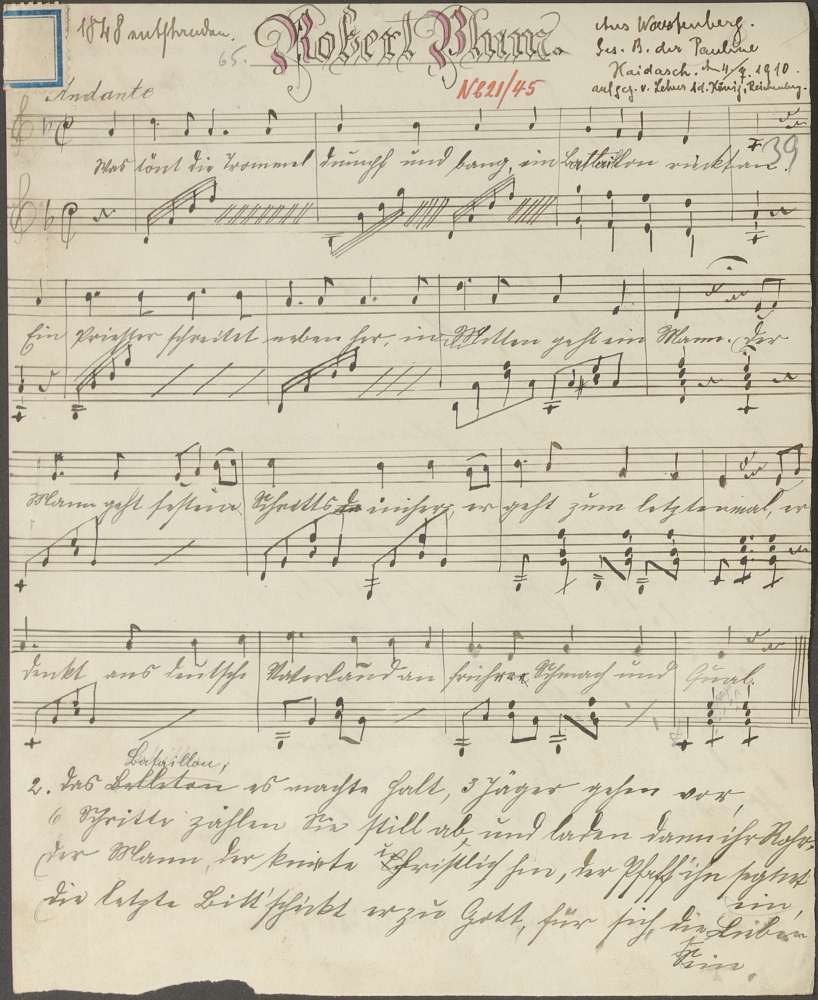 1848 entstanden.
65. Robert Blum.
Aus Wartenberg.
Ges. B. der Pauline
Haidasch. den 4/9. 1910.
aufgez. v. Lehrer Ad. König, Reichenberg.
N 621/45
Andante
39
Was tönt die Trommel dumpf und bang, ein Battaillon rückt an.
Ein Priester schreitet neben her, in Mitten geht ein Mann. Der
Mann geht festen Schritts einher, er geht zum letztenmal, er
denkt ans deutsche Vaterland an frührer Schmach und Qual.
Bataillon,
2. Das es machte halt, 3 Jäger gehen vor,
6 Schritte zählen Sie still ab, und laden dann ihr Rohr.
Der Mann, der kniete christlich hin, der Pfaff ihn segnet
ein,
die letzte Bitt' schickt er zu Gott, für sich, die Lieben
Sein.